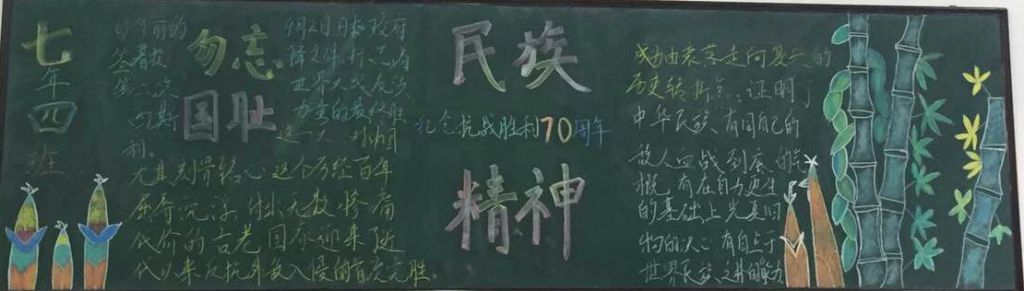 七年四班
勿忘
国耻
年前的
9月2日日本政府
签署投
降文件
第二次
世界大战
西斯
力量的最终胜
利。
这一天
尤其刻骨铭心 这个历经百年
屈辱沉浮,付出无数惨痛
代价的古老国家迎来了近
代以来反抗外敌入侵的首次完胜。
民族
纪念抗战胜利70周年
精神
由衰落走向复兴的
历史转折点,证明了
中华民族有同自己的
敌人血战到底的气
概,有在自力更生
的基础上光复旧
物的决心 有自立于
世界民族之林的能力